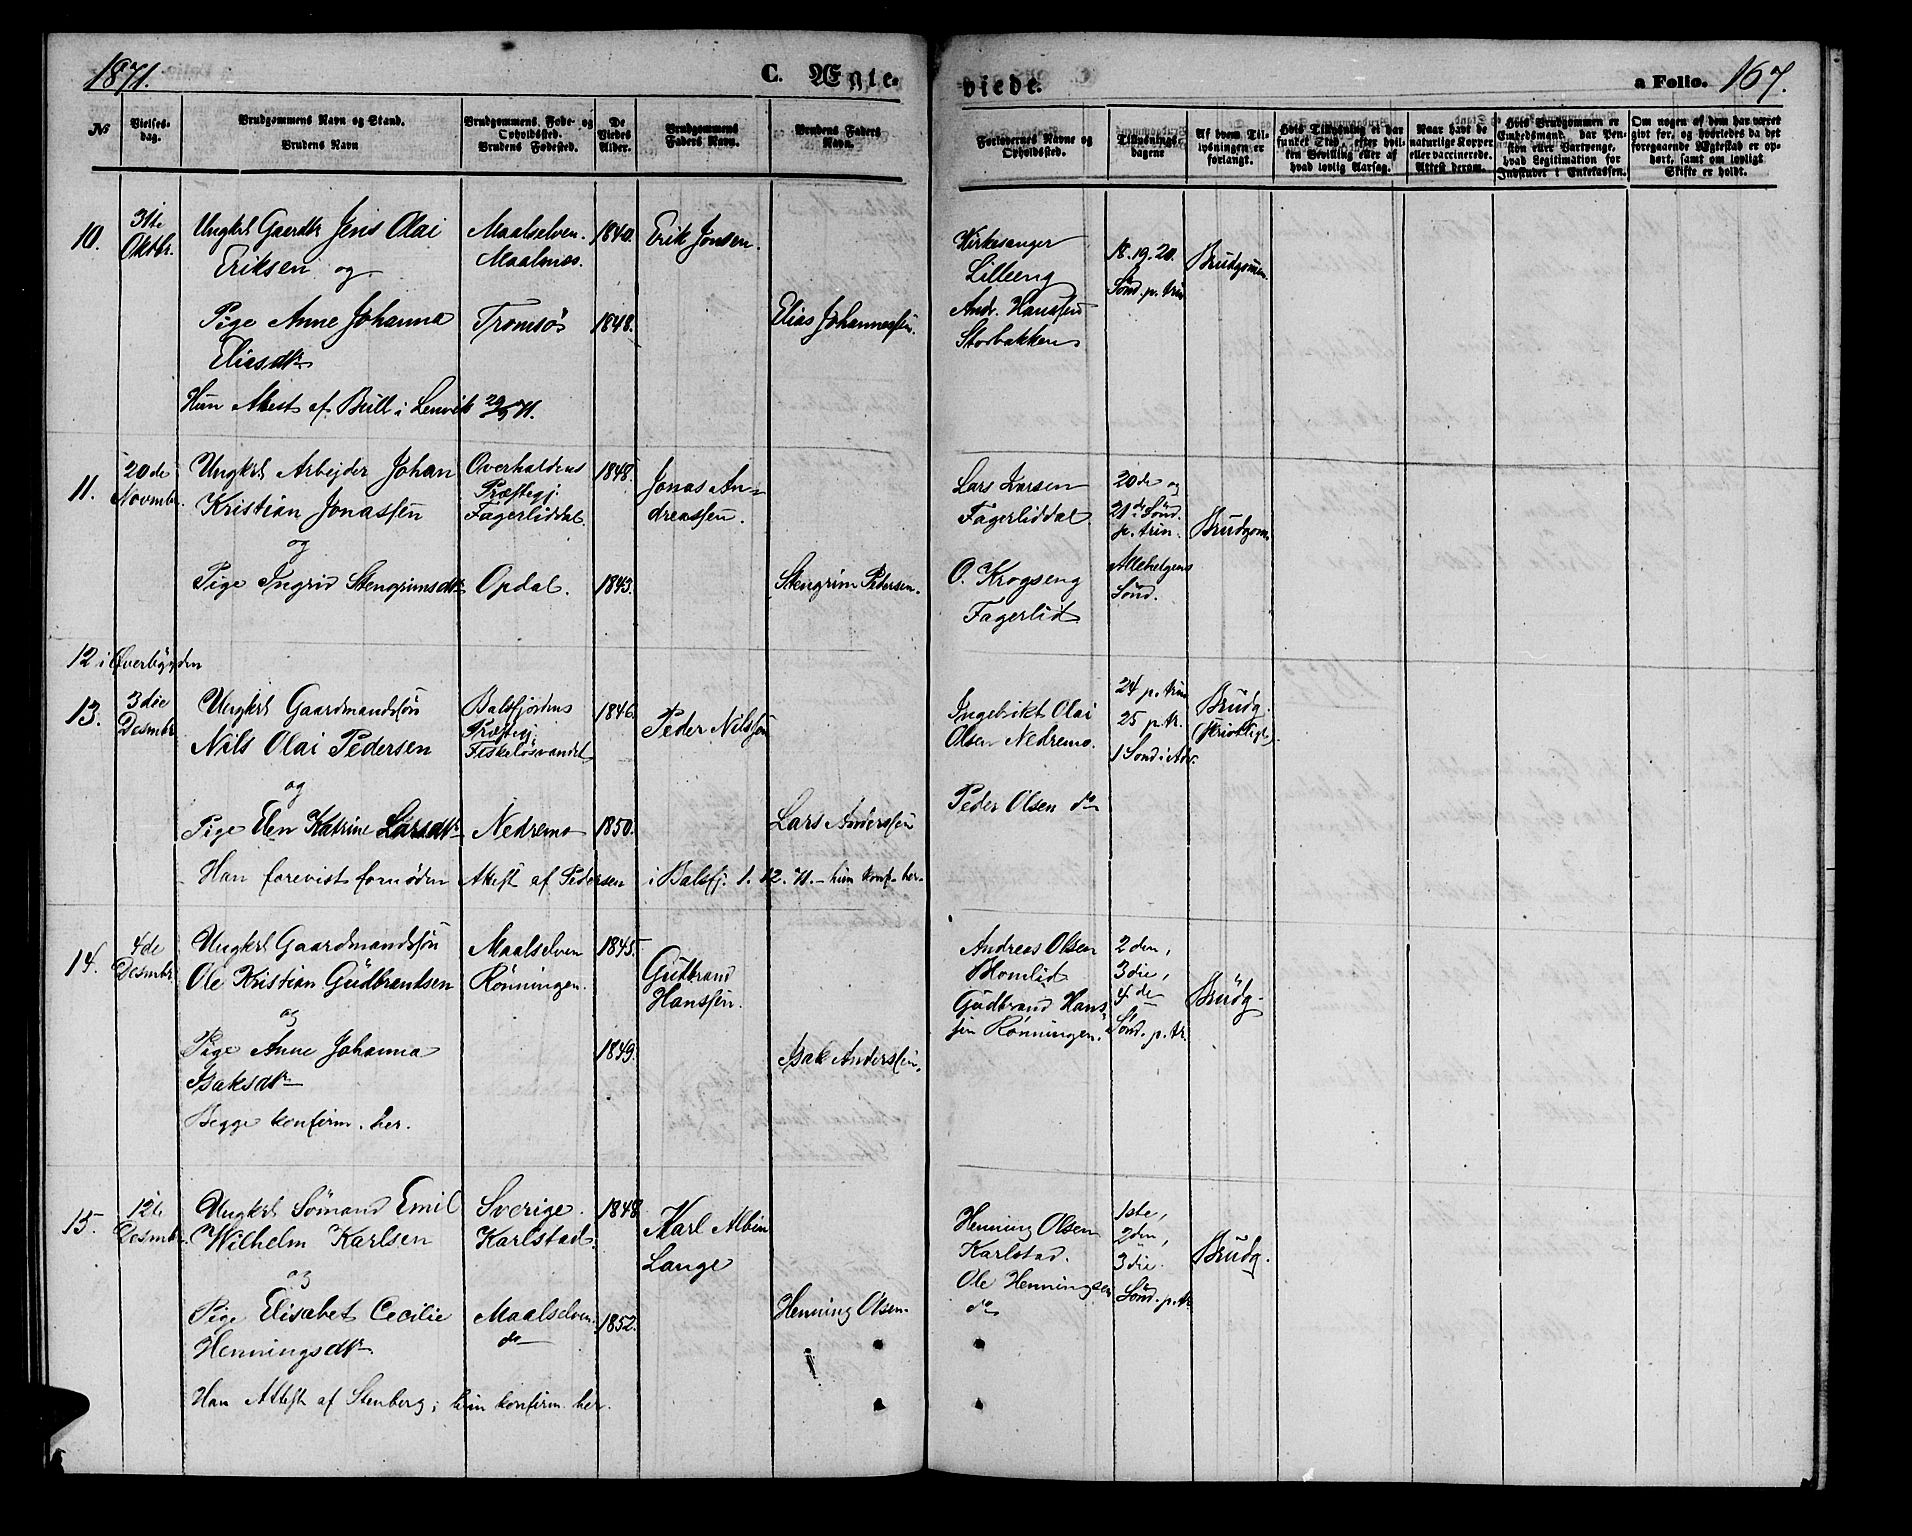 1871.
C. Ægte-
viede.
a Folio. 167.
No
Vielses-
dag.
Brudgommens Navn og Stand.
Brudens Navn
Brudgommens Føde- og
Opholdssted.
Brudens Fødested.
De
Viedes
Alder.
Brudgommens
Faders Navn.
Brudens Faders
Navn.
Forlovernes Navne og
Opholdssted.
Tillysnings-
dagene
Af hvem Til-
lysningen er
forlangt.
Hvis Tillysning ei har
funket Sted, efter hvil-
ken Bevilling eller af
hvad lovlig Aarsag.
Naar havt de
naturlige Kopper
eller vaccinerede.
Attest derom.
Hvis Brudgommen er
Embedsmand, har Pen-
sion eller Vartpenge,
hvad Legitimation for
Indskudet i Enkekassen.
Om nogen af dem har været
givt før, og hvorledes da det
foregaaende Ægteskab er op-
hørt, samt om lovligt
Skifte er holdt.
10.
31te
Oktbr.
Ungkrl Gaardbr Jens Olai
Eriksen og
Maalselven.
Maalsnæs.
1840.
Erik Jonsen.
Kirkesanger
Lilleeng
18. 19. 20.
Sønd. p. trin
Brudgommen
Pige Anne Johanna
Eliasdtr
Tromsø
1848.
Elias Johannessen.
Andr. Hanssen
Storbakken
Hun Attest af Bull i Lenvik 29/9 71.
11.
20de
Novembr.
Ungkrl Arbejder Johan
Kristian Jonassen
og
Overhaldens
Præstegj.
Fagerliddal.
1848.
Jonas An-
dreassen.
Lars Larsen
Fagerliddal
20de og
21de Sønd.
p. trin.
Brudgom.
Pige Ingrid Stengrimsdtr
Opdal.
1843.
Stengrim Pedersen.
O. Krogseng
Fagerlid
Allehelgens
Sønd.
12 i Øverbygden
13.
3die
Desmbr
Ungkrl Gaardmandssøn
Nils Olai Pedersen
og
Balsfjordens
Præstegj.
Fiskeløsvandet
1846.
Peder Nilssen
Ingebrikt Olai
Olsen Nedremo.
24 p. trin
25 p. tr.
1 Sønd i Adv.
Brudg.
(skriftligt)
Peder Olsen do
Pige Elen Katrine Larsdtr
Nedremo
1850.
Lars Anderssen
Han forevist fornøden Attest af Pedersen i Balsfj. 1. 12. 71. – hun konf. her.
14.
4de
Desmbr
Ungkrl Gaardmandssøn
Ole Kristian Gudbrandsen
og
Maalselven
Rønningen.
1845.
Gudbrand
Hanssen.
Andreas Olsen
Blomlid
Gudbrand Hans-
sen Rønningen.
2den,
3die,
4de
Sønd. p. tr.
Brudg.
Pige Anne Johanna
Isaksdtr
1849.
Isak Anderssen.
Begge konfirm. her.
15.
12te
Desmbr.
Ungkrl Sømand Emil
Wilhelm Karlsen
og
Sverige.
Karlstad.
1848
Karl Albin
Lange
Henning Olsen
Karlstad.
Ole Henningsen
do
1ste,
2den,
3die.
Sønd. p. tr.
Brudg.
Pige Elisabet Cecilie
Henningsdtr.
Maalselven.
do
1852.
Henning Olsen
Han Attest af Stenberg; hun konfirm. her.